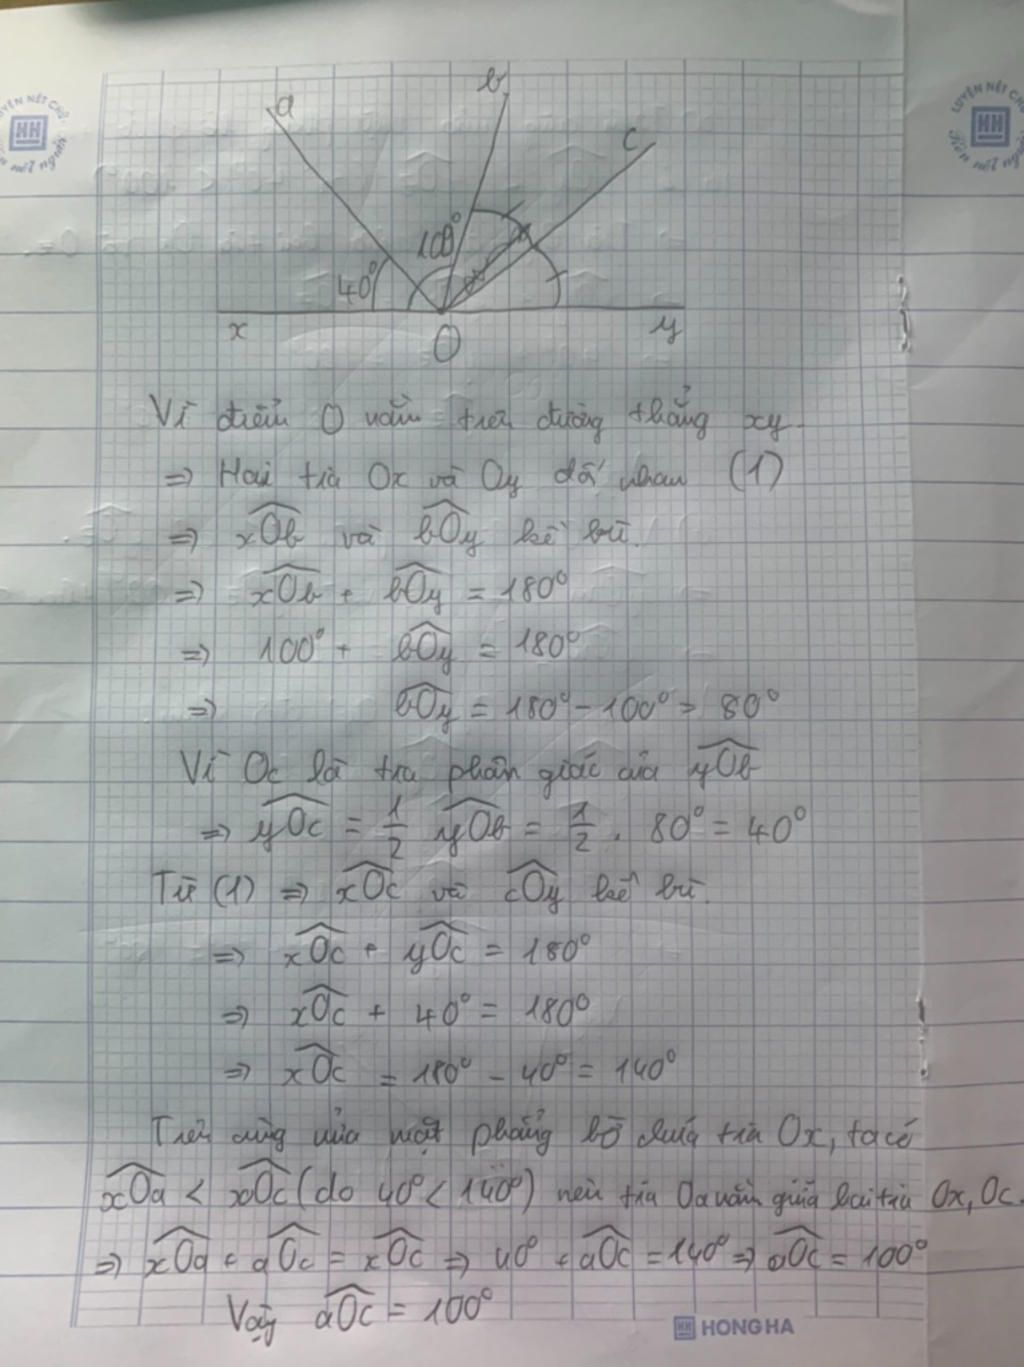 LUYỆN NÉT CHỮ
HH
Rèn nết người
a
b
c
100°
40°
x
O
y
Vì điểm O nằm trên đường thẳng xy.
⇒ Hai tia Ox và Oy đối nhau (1)
⇒ xOb và bOy kề bù.
⇒ xOb + bOy = 180°
⇒ 100° + bOy = 180°
⇒ bOy = 180° - 100° = 80°
Vì Oc là tia phân giác của yOb
⇒ yOc = 1/2 yOb = 1/2 . 80° = 40°
Từ (1) ⇒ xOc và cOy kề bù.
⇒ xOc + yOc = 180°
⇒ xOc + 40° = 180°
⇒ xOc = 180° - 40° = 140°
Trên cùng nửa mặt phẳng bờ chứa tia Ox, ta có
xOa < xOc (do 40° < 140°) nên tia Oa nằm giữa hai tia Ox, Oc.
⇒ xOa + aOc = xOc ⇒ 40° + aOc = 140° ⇒ aOc = 100°
Vậy aOc = 100°
HH HONG HA